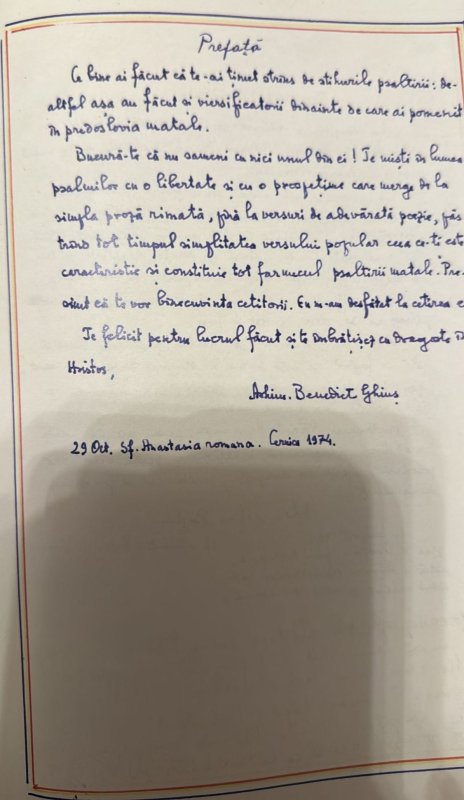 Prefață
Ce bine ai făcut că te-ai ținut strîns de stihurile psaltirii: de-
altfel așa au făcut și viersificatorii dinainte de care ai pomenit
în predoslovia matale.
Bucură-te că nu sameni cu nici unul din ei! Te miști în lumea
psalmilor cu o libertate și cu o prospețime care merge de la
simpla proză rimată, pînă la versuri de adevărată poezie, păs
trînd tot timpul simplitatea versului popular ceea ce-ți este
caracteristic și constituie tot farmecul psaltirii matale. Pre-
simt că te vor binecuvînta cetitorii. Eu m-am desfătat la cetirea e
Te felicit pentru lucrul făcut și te îmbrățișez cu dragoste în
Hristos,
Arhim. Benedict Ghiuș
29 Oct. Sf. Anastasia romana. Cernica 1974.